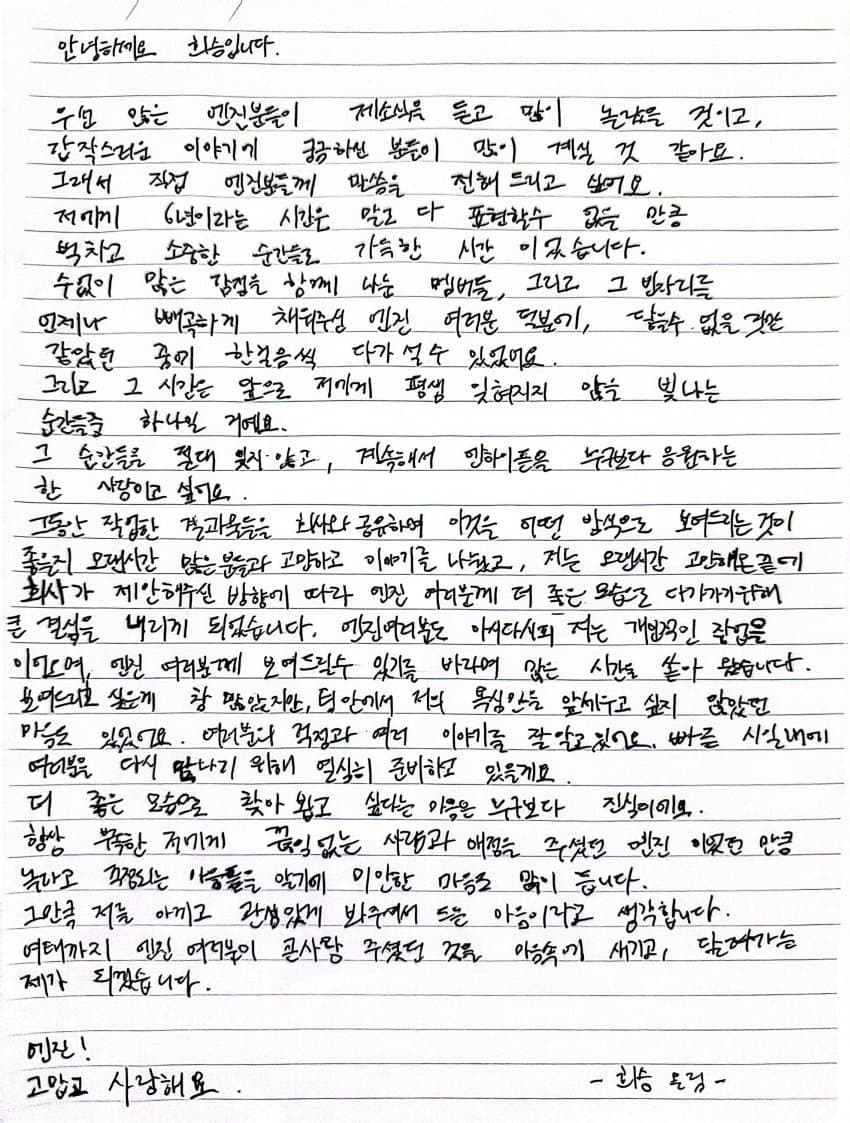 안녕하세요 희승입니다.
우선 많은 엔진분들이 제소식을 듣고 많이 놀랐을 것이고,
갑작스러운 이야기에 궁금하신 분들이 많이 계실 것 같아요.
그래서 직접 엔진분들께 말씀을 전해 드리고 싶어요.
저에게 6년이라는 시간은 말로 다 표현할수 없을 만큼
벅차고 소중한 순간들로 가득한 시간 이었습니다.
수없이 많은 감정을 함께 나눈 멤버들, 그리고 그 빈자리를
언제나 빼곡하게 채워주신 엔진 여러분 덕분에, 닿을수 없을 것만
같았던 꿈에 한걸음씩 다가 설 수 있었어요.
그리고 그 시간은 앞으로 저에게 평생 잊혀지지 않을 빛나는
순간들중 하나일 거에요.
그 순간들을 절대 잊지 않고, 계속해서 엔하이픈을 누구보다 응원하는
한 사람이고 싶어요.
그동안 작업한 결과물들을 회사와 공유하며 이것을 어떤 방식으로 보여드리는 것이
좋을지 오랜시간 많은 분들과 고민하고 이야기를 나눴고, 저는 오랜시간 고민해온 끝에
회사가 제안해주신 방향에 따라 엔진 여러분께 더 좋은 모습으로 다가가기위해
큰 결심을 내리게 되었습니다. 엔진여러분도 아시다시피 저는 개인적인 작업을
이어오며, 엔진 여러분께 보여드릴수 있기를 바라며 많은 시간을 쏟아 왔습니다.
보여드리고 싶은게 참 많았지만, 팀 안에서 저의 욕심만을 앞세우고 싶지 않았던
마음도 있었어요. 여러분의 걱정과 여러 이야기를 잘 알고 있어요. 빠른 시일내에
여러분을 다시 만나기 위해 열심히 준비하고 있을게요.
더 좋은 모습으로 찾아 뵙고 싶다는 마음은 누구보다 진심이에요.
항상 부족한 저에게 끊임없는 사랑과 애정을 주셨던 엔진 이었던 만큼
놀라고 걱정되는 마음들을 알기에 미안한 마음도 많이 듭니다.
그만큼 저를 아끼고 관심있게 봐주셔서 드는 마음이라고 생각합니다.
여태까지 엔진 여러분이 큰사랑 주셨던 것을 마음속에 새기고, 달려가는
제가 되겠습니다.
엔진!
고맙고 사랑해요.
- 희승 올림 -